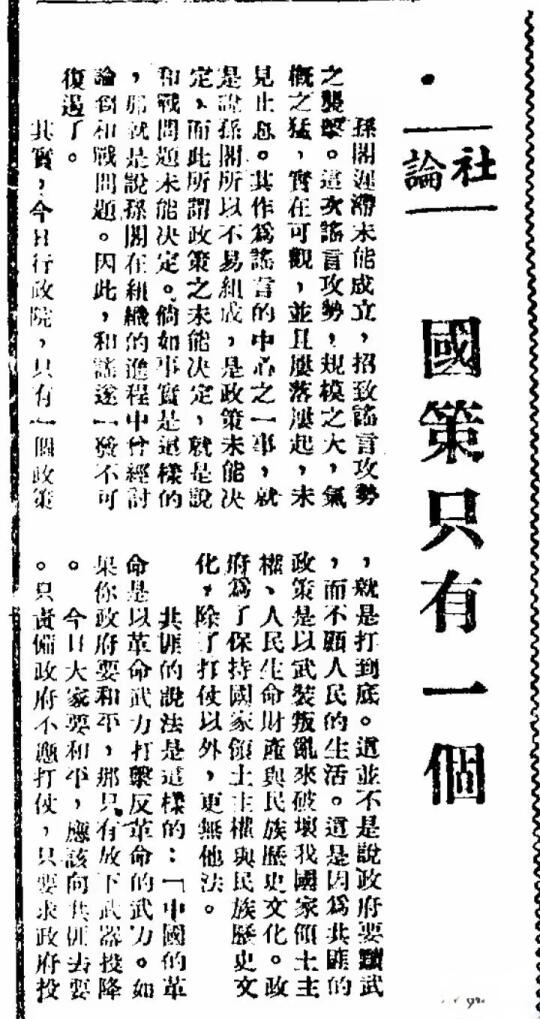 社論
國策只有一個
孫閣遲滯未能成立,招致謠言攻勢
之襲擊。這次謠言攻勢,規模之大,氣
概之猛,實在可觀,並且屢落屢起,未
見止息。其作爲謠言的中心之一事,就
是說孫閣所以不易組成,是政策未能決
定,而此所謂政策之未能決定,就是說
和戰問題未能決定。倘如事實是這樣的
,那就是說孫閣在組織的進程中曾經討
論到和戰問題。因此,和謠遂一發不可
復遏了。
其實,今日行政院,只有一個政策
,就是打到底。這並不是說政府要黷武
,而不顧人民的生活。這是因爲共匪的
政策是以武裝叛亂來破壞我國家領土主
權、人民生命財產與民族歷史文化。政
府爲了保持國家領土主權與民族歷史文
化,除了打仗以外,更無他法。
共匪的說法是這樣的:「中國的革
命是以革命武力打擊反革命的武力。如
果你政府要和平,那只有放下武器投降
。今日大家要和平,應該向共匪去要
。只責備政府不應打仗,只要求政府投